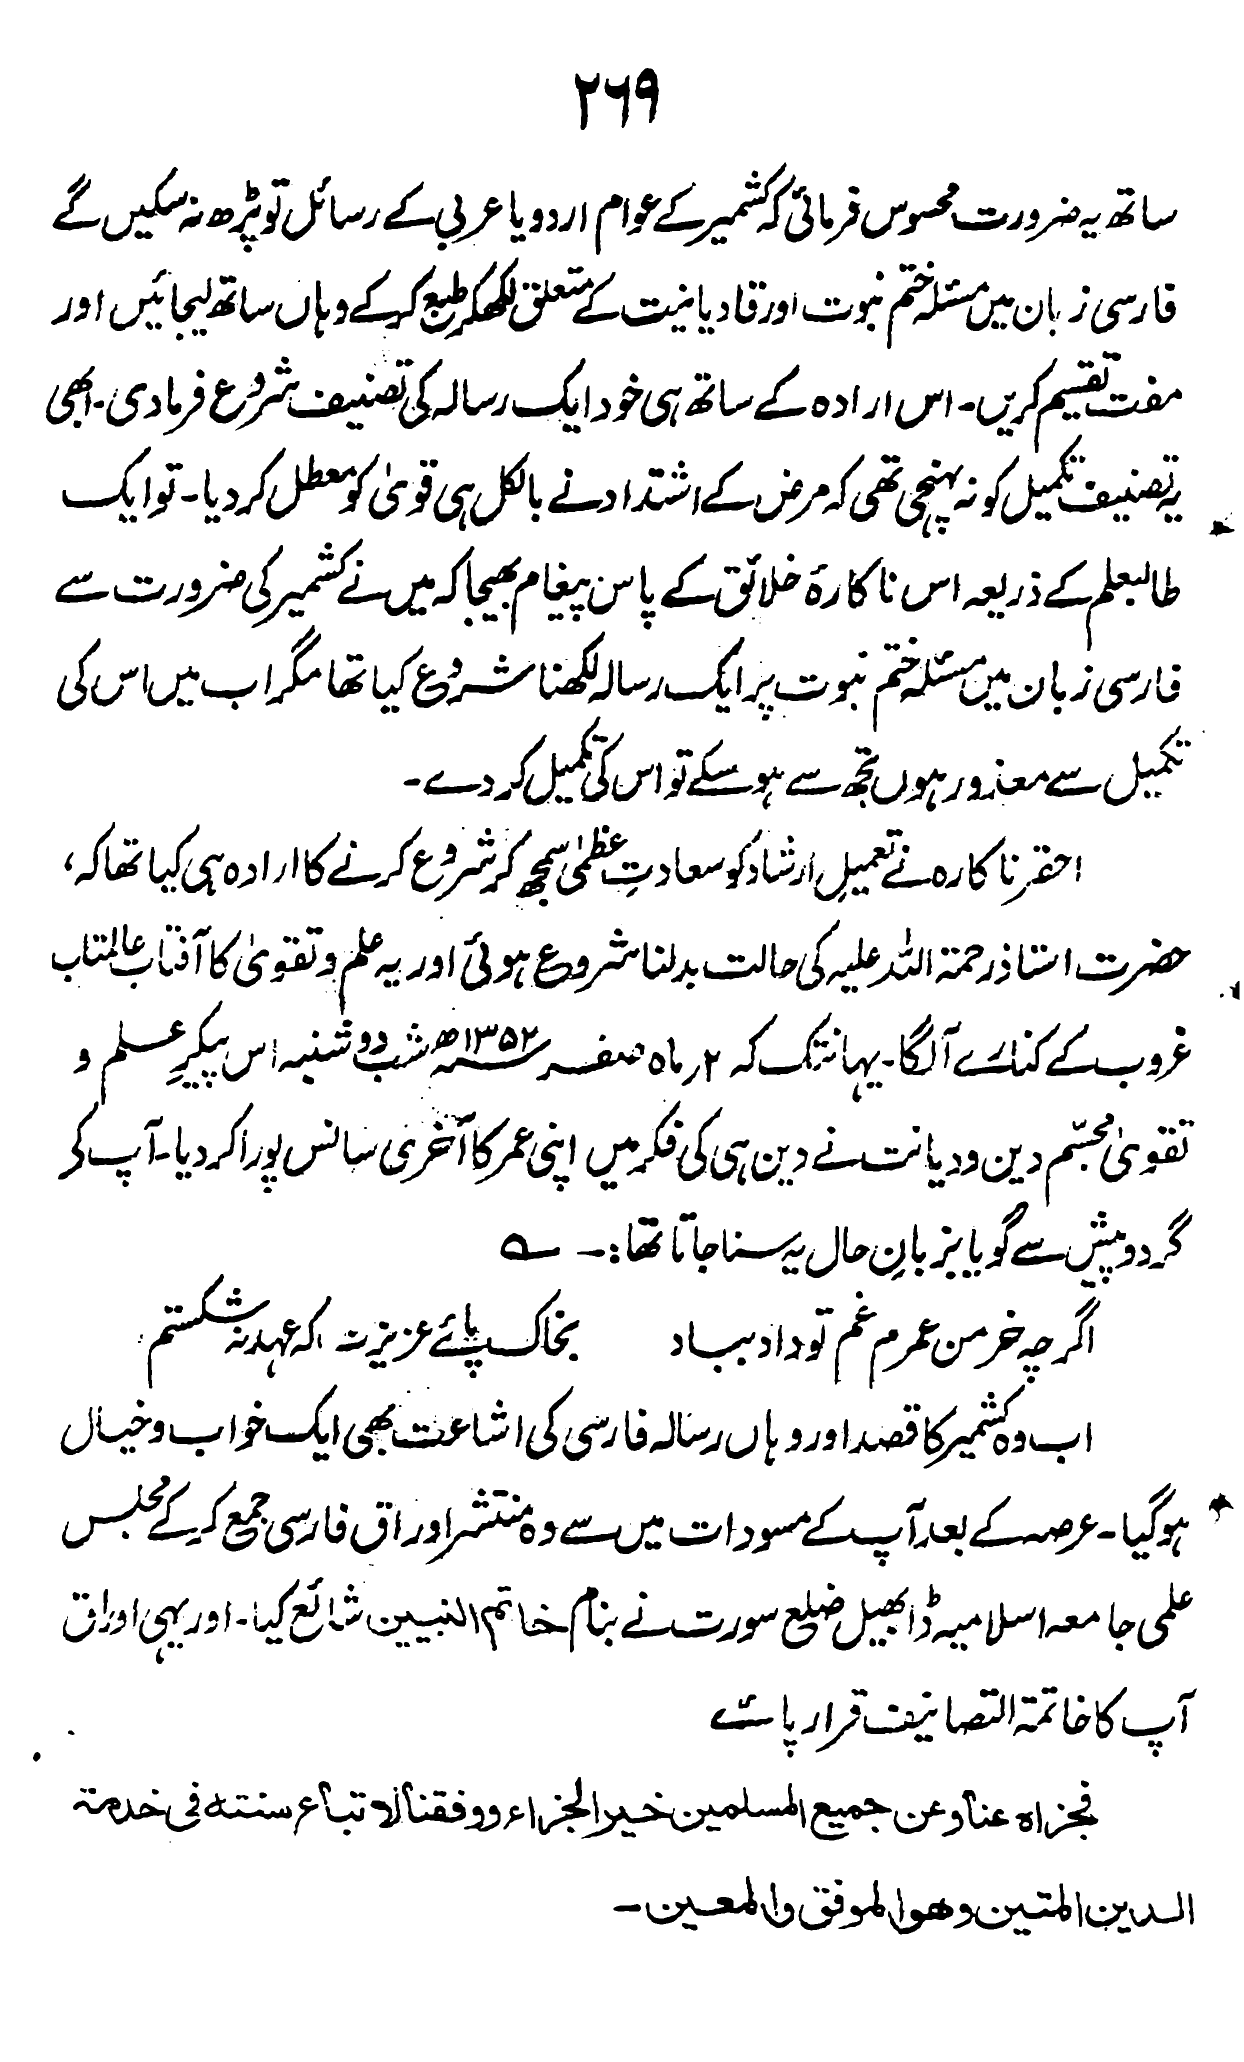 ۲۶۹
ساتھ یہ ضرورت محسوس فرمائی کہ کشمیر کے عوام اردو یا عربی کے رسائل تو پڑھ نہ سکیں گے
فارسی زبان میں مسئلہ ختم نبوت اور قادیانیت کے متعلق لکھکر طبع کر کے وہاں ساتھ لیجائیں اور
مفت تقسیم کریں۔ اس ارادہ کے ساتھ ہی خود ایک رسالہ کی تصنیف شروع فرمادی۔ ابھی
یہ تصنیف تکمیل کو نہ پہنچی تھی کہ مرض کے اشتداد نے بالکل ہی قویٰ کو معطل کر دیا۔ تو ایک
طالبعلم کے ذریعہ اس ناکارۂ خلائق کے پاس پیغام بھیجا کہ میں نے کشمیر کی ضرورت سے
فارسی زبان میں مسئلہ ختم نبوت پر ایک رسالہ لکھنا شروع کیا تھا مگر اب میں اس کی
تکمیل سے معذور ہوں تجھ سے ہو سکے تو اس کی تکمیل کر دے۔
احقر ناکارہ نے تعمیلِ ارشاد کو سعادتِ عظمیٰ سمجھ کر شروع کرنے کا ارادہ ہی کیا تھا کہ،
حضرت استاذ رحمۃ اللہ علیہ کی حالت بدلنا شروع ہوئی اور یہ علم و تقویٰ کا آفتاب عالمتاب
غروب کے کنارے آلگا۔ یہانتک کہ ۲؍ ماہ صفر سنہ ۱۳۵۲ھ شب دو شنبہ اس پیکرِ علم و
تقویٰ مجسّم دین و دیانت نے دین ہی کی فکر میں اپنی عمر کا آخری سانس پورا کر دیا۔ آپ کی
گرد و پیش سے گویا بزبانِ حال یہ سنا جاتا تھا :۔ ؎
اگرچہ خرمن عمرم غم تو داد بباد بخاک پائے عزیزت کہ عہد نہ شکستم
اب وہ کشمیر کا قصد اور وہاں رسالہ فارسی کی اشاعت بھی ایک خواب و خیال
ہوگیا۔ عرصہ کے بعد آپ کے مسودات میں سے وہ منتشر اوراق فارسی جمع کر کے مجلس
علمی جامعہ اسلامیہ ڈابھیل ضلع سورت نے بنام خاتم النبیین شائع کیا۔ اور یہی اوراق
آپ کا خاتمۃ التصانیف قرار پائے
فجزاہ عنا وعن جمیع المسلمین خیر الجزاء ووفقنا لاتباع سنتہ فی خدمۃ
الدین المتین وھو الموفق والمعین۔